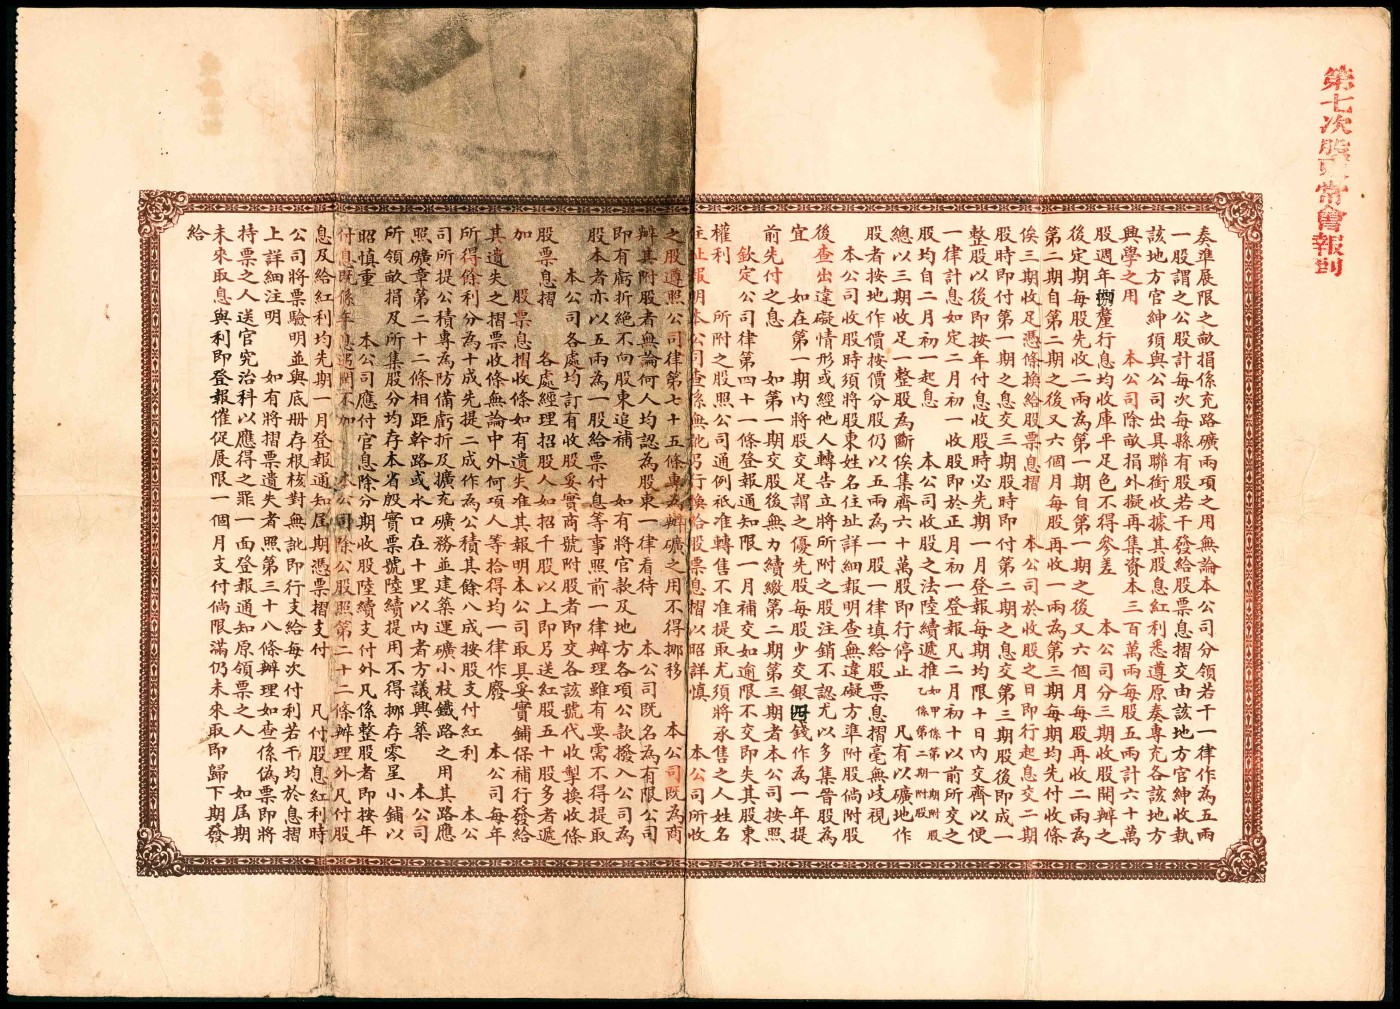 第七次股東常會報到
奏準展限之畝捐係充路礦兩項之用無論本公司分領若干一律作為五兩
一股謂之公股計每次每縣有股若干發給股票息摺交由該地方官紳收執
該地方官紳須與公司出具聯銜收據其股息紅利悉遵原奏專充各該地方
興學之用 本公司除畝捐外擬再集資本三百萬兩每股五兩計六十萬
股週年捌釐行息均收庫平足色不得參差 本公司分三期收股開辦之
後定期每股先收二兩為第一期自第一期之後又六個月每股再收二兩為
第二期自第二期之後又六個月每股再收一兩為第三期每期均先付收條
俟三期收足憑條換給股票息摺 本公司於收股之日即行起息交二期
股時即付第一期之息交三期股時即付第二期之息交第三期股後即成一
整股以後即按年付息收股時必先期一月登報每期均限十日內交齊以便
一律計息如定二月初一收股即於正月初一登報凡二月初十以前所交之
股均自二月初一起息 本公司收股之法陸續遞推如甲係第一期附股乙係第二期附股
總以三期收足一整股為斷俟集齊六十萬股即行停止 凡有以礦地作
股者按地作價按價分股仍以五兩為一股一律填給股票息摺毫無歧視
本公司收股時須將股東姓名住址詳細報明查無違礙方準附股倘附股
後查出違礙情形或經他人轉告立將所附之股注銷不認尤以多集晉股為
宜 如在第一期內將股交足謂之優先股每股少交銀四錢作為一年提
前先付之息 如第一期交股後無力續繳第二期第三期者本公司按照
欽定公司律第四十一條登報通知限一月補交如逾限不交即失其股東
權利 所附之股照公司通例祇准轉售不准提取尤須將承售之人姓名
住址報明本公司查係無訛乃行換給股票息摺以昭詳慎 本公司所收
之股遵照公司律第七十五條專為辦礦之用不得挪移 本公司既為商
辦其附股者無論何人均認為股東一律看待 本公司既名為有限公司
即有虧折絕不向股東追補 如有將官款及地方各項公款撥入公司為
股本者亦以五兩為一股給票付息等事照前一律辦理雖有要需不得提取
本公司各處均訂有收股妥實商號附股者即交各該號代收掣換收條
股票息摺 各處經理招股人如招千股以上即另送紅股五十股多者遞
加 股票息摺收條如有遺失准其報明本公司取具妥實鋪保補行發給
其遺失之摺票收條無論中外何項人等拾得均一律作廢 本公司每年
所得餘利分為十成先提二成作為公積其餘八成按股支付紅利 本公
司所提公積專為防備虧折及擴充礦務並建築運礦小枝鐵路之用其路應
照礦章第二十二條相距幹路或水口在十里以內者方議興築 本公司
所領畝捐及所集股分均存本省殷實票號陸續提用不得挪存零星小鋪以
昭慎重 本公司應付官息除分期收股陸續支付外凡係整股者即按年
付息既係年息遇閏不加 本公司除公股照第二十二條辦理外凡付股
息及給紅利均先期一月登報通知屆期憑票摺支付 凡付股息紅利時
公司將票驗明並與底册存根核對無訛即行支給每次付利若干均於息摺
上詳細注明 如有將摺票遺失者照第三十八條辦理如查係偽票即將
持票之人送官究治科以應得之罪一面登報通知原領票之人 如屆期
未來取息與利即登報催促展限一個月支付倘限滿仍未來取即歸下期發
給